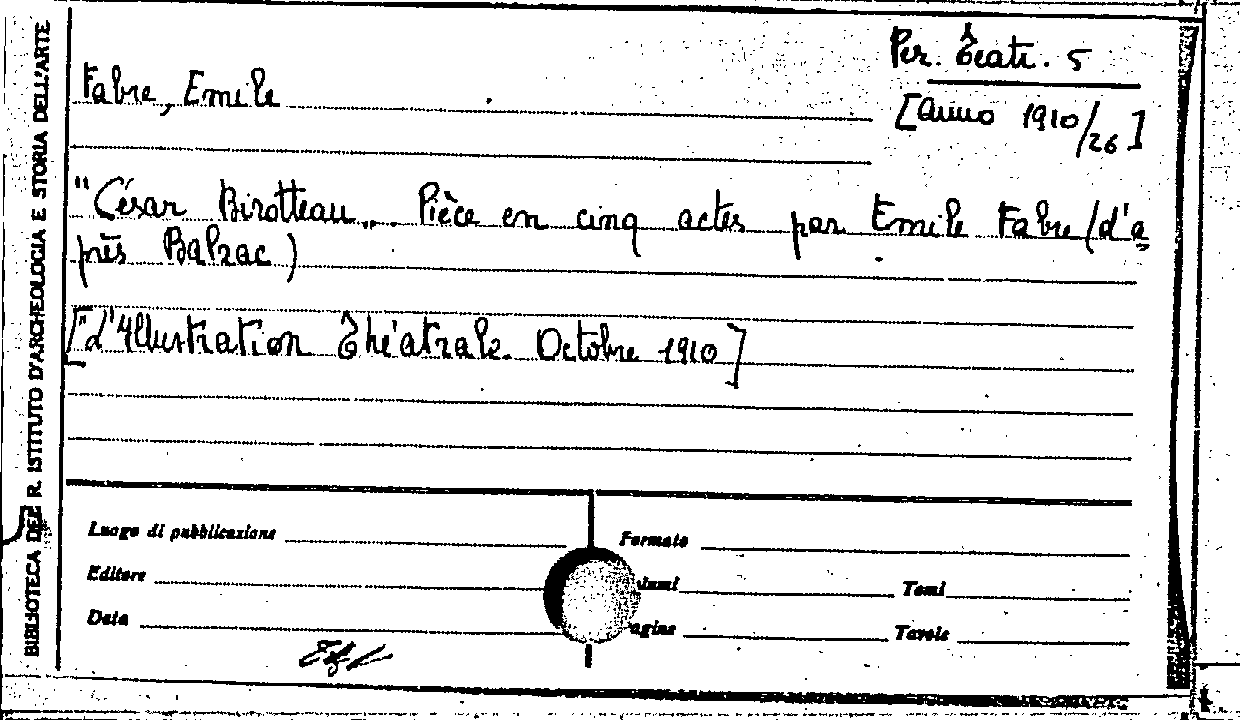 BIBLIOTECA DEL R. ISTITUTO D'ARCHEOLOGIA E STORIA DELL'ARTE
Per. Teatr. 5
Fabre, Emile
[Anno 1910/26]
"César Birotteau„. Pièce en cinq actes par Emile Fabre (d'a
près Balzac)
["L'Illustration Théatrale. Octobre 1910]
Luogo di pubblicazione
Formato
Editore
Tomi
Data
Tavole